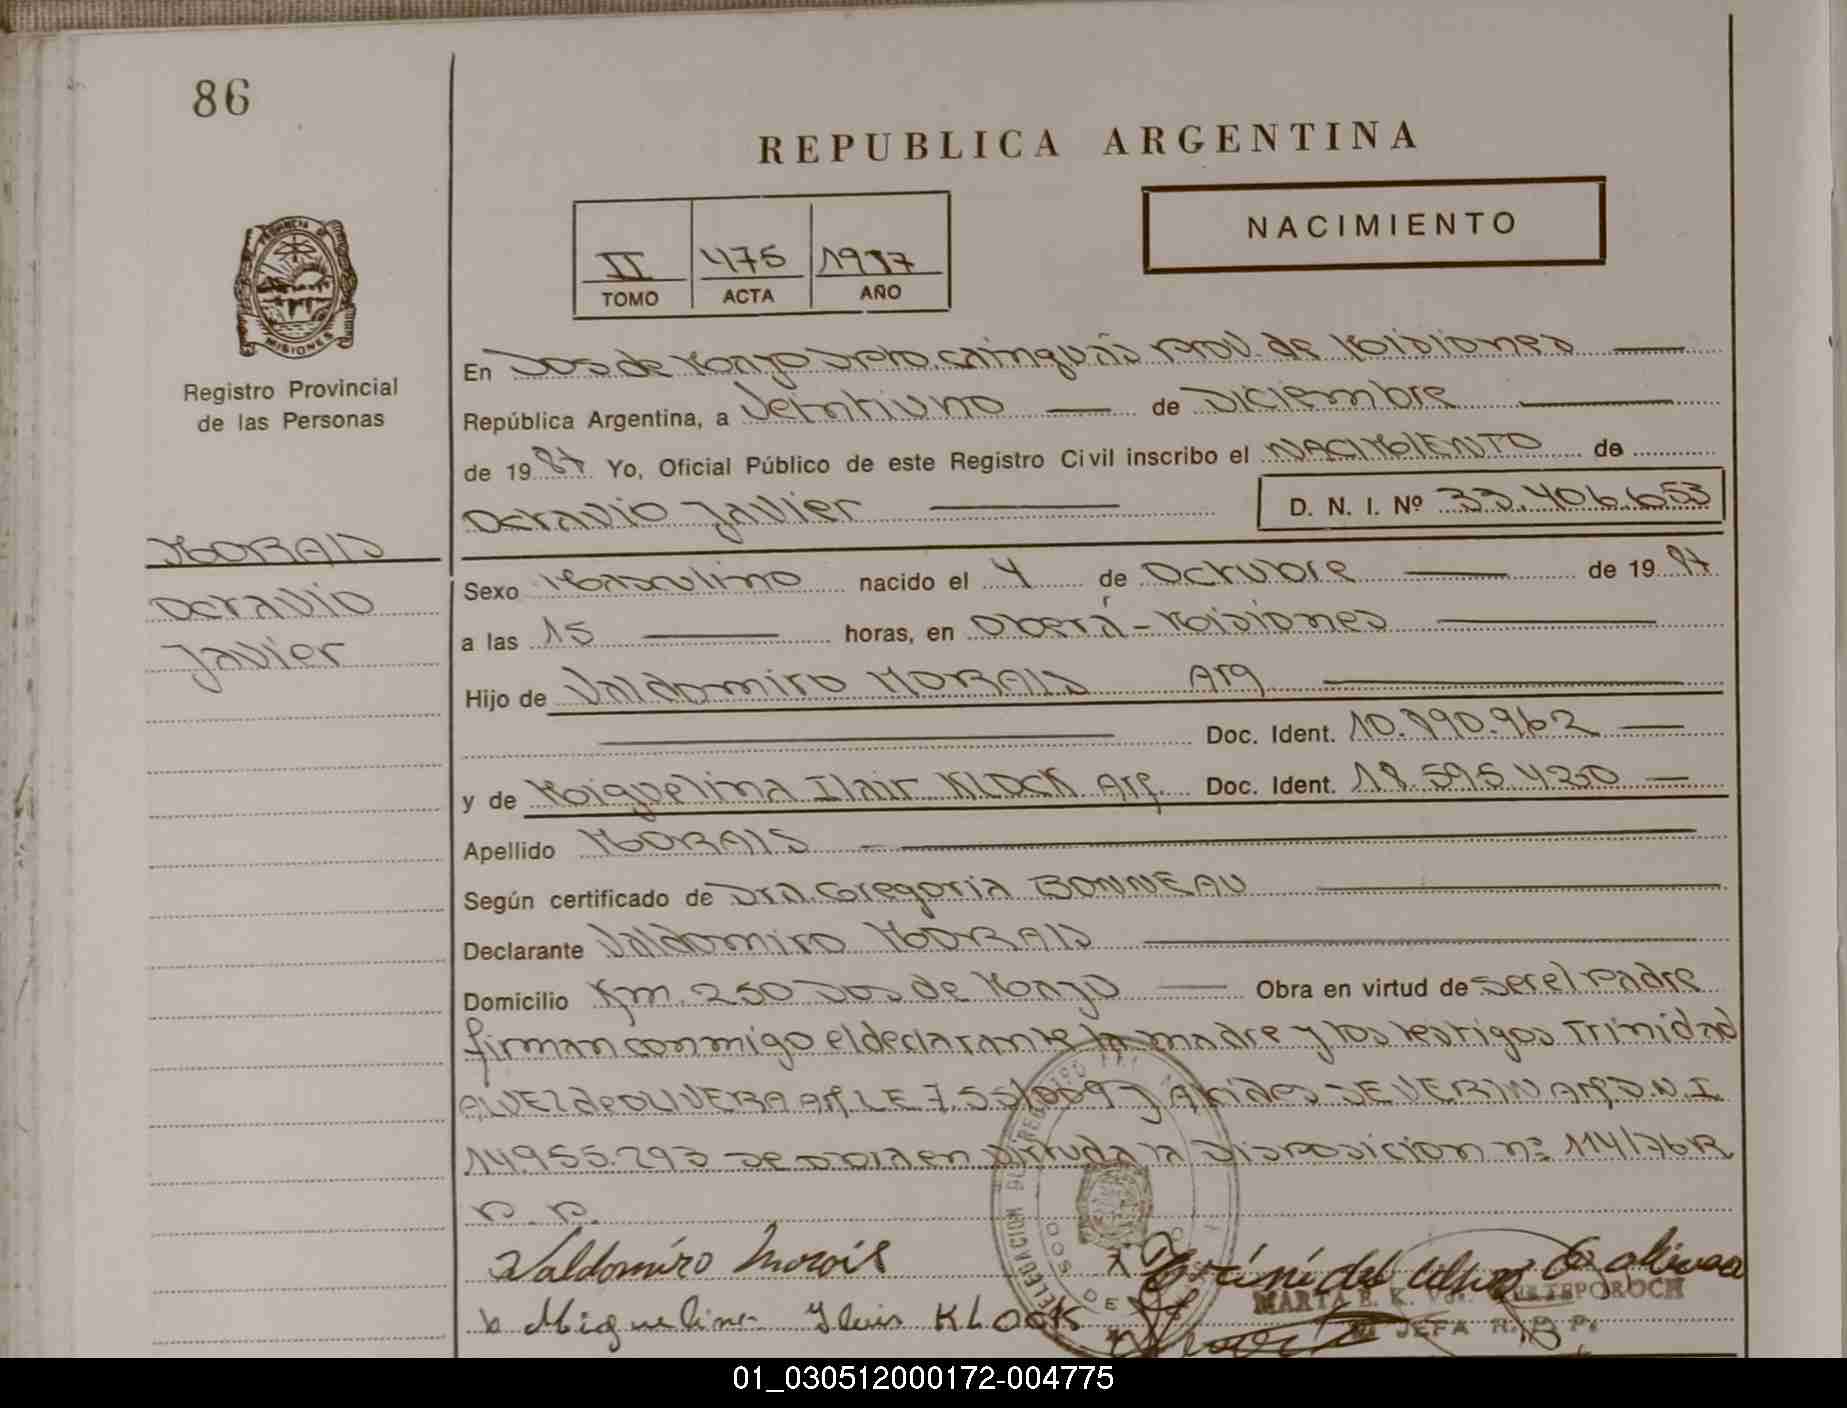 86
REPUBLICA ARGENTINA
NACIMIENTO
II 475 1987
TOMO ACTA AÑO
PROVINCIA DE
MISIONES
Registro Provincial
de las Personas
MORAIS
Octavio
Javier
En Dos de Mayo Dpto. Cainguás Prov. de Misiones
República Argentina, a Veintiuno de Diciembre
de 1987 Yo, Oficial Público de este Registro Civil inscribo el NACIMIENTO de
Octavio Javier D. N. I. Nº 33.406.653
Sexo Masculino nacido el 4 de Octubre de 1987
a las 15 horas, en Oberá - Misiones
Hijo de Valdomiro MORAIS Arg
Doc. Ident. 10.890.962
y de Miguelina Ilair KLOCK Arg. Doc. Ident. 18.595.430
Apellido MORAIS
Según certificado de Dra. Gregoria BONNEAU
Declarante Valdomiro MORAIS
Domicilio Km. 250 Dos de Mayo Obra en virtud de ser el Padre
firman conmigo el declarante la madre y los testigos Trinidad
ALVEZ de OLIVERA Arg L E 7.551009 y Alcides SEVERIN Arg D.N.I.
14955.293 se obra en virtud a la Disposicion nº 114/76 R
P. P.
Valdomiro Morais
x Miguelina Ilair KLOCK
MARTA E. K.
JEFA R. P. P.
01_030512000172-004775